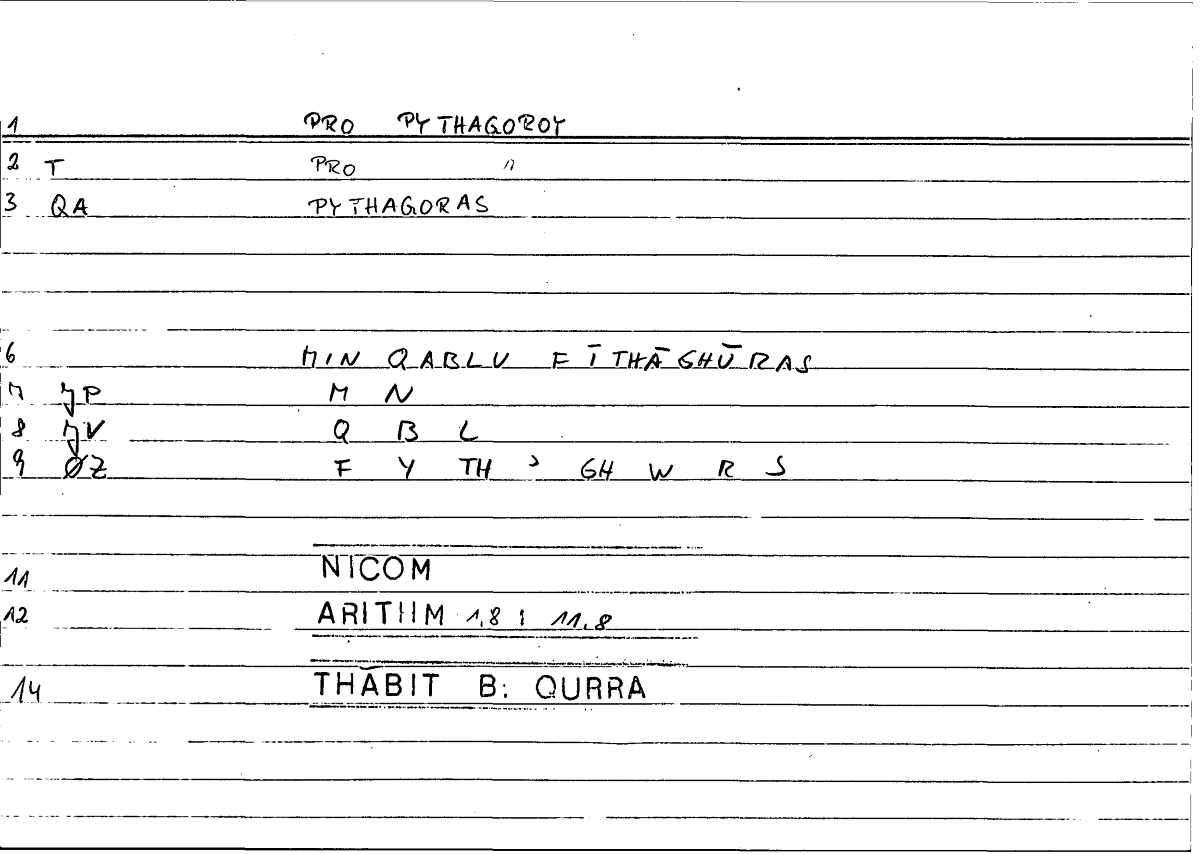 1 PRO PYTHAGOROY
2 T PRO "
3 QA PYTHAGORAS
6 MIN QABLU FĪTHĀGHŪRAS
7 JP M N
8 JV Q B L
9 ØZ F Y TH ʾ GH W R S
11 NICOM
12 ARITHM 1,8 ; 11,8
14 THĀBIT B. QURRA